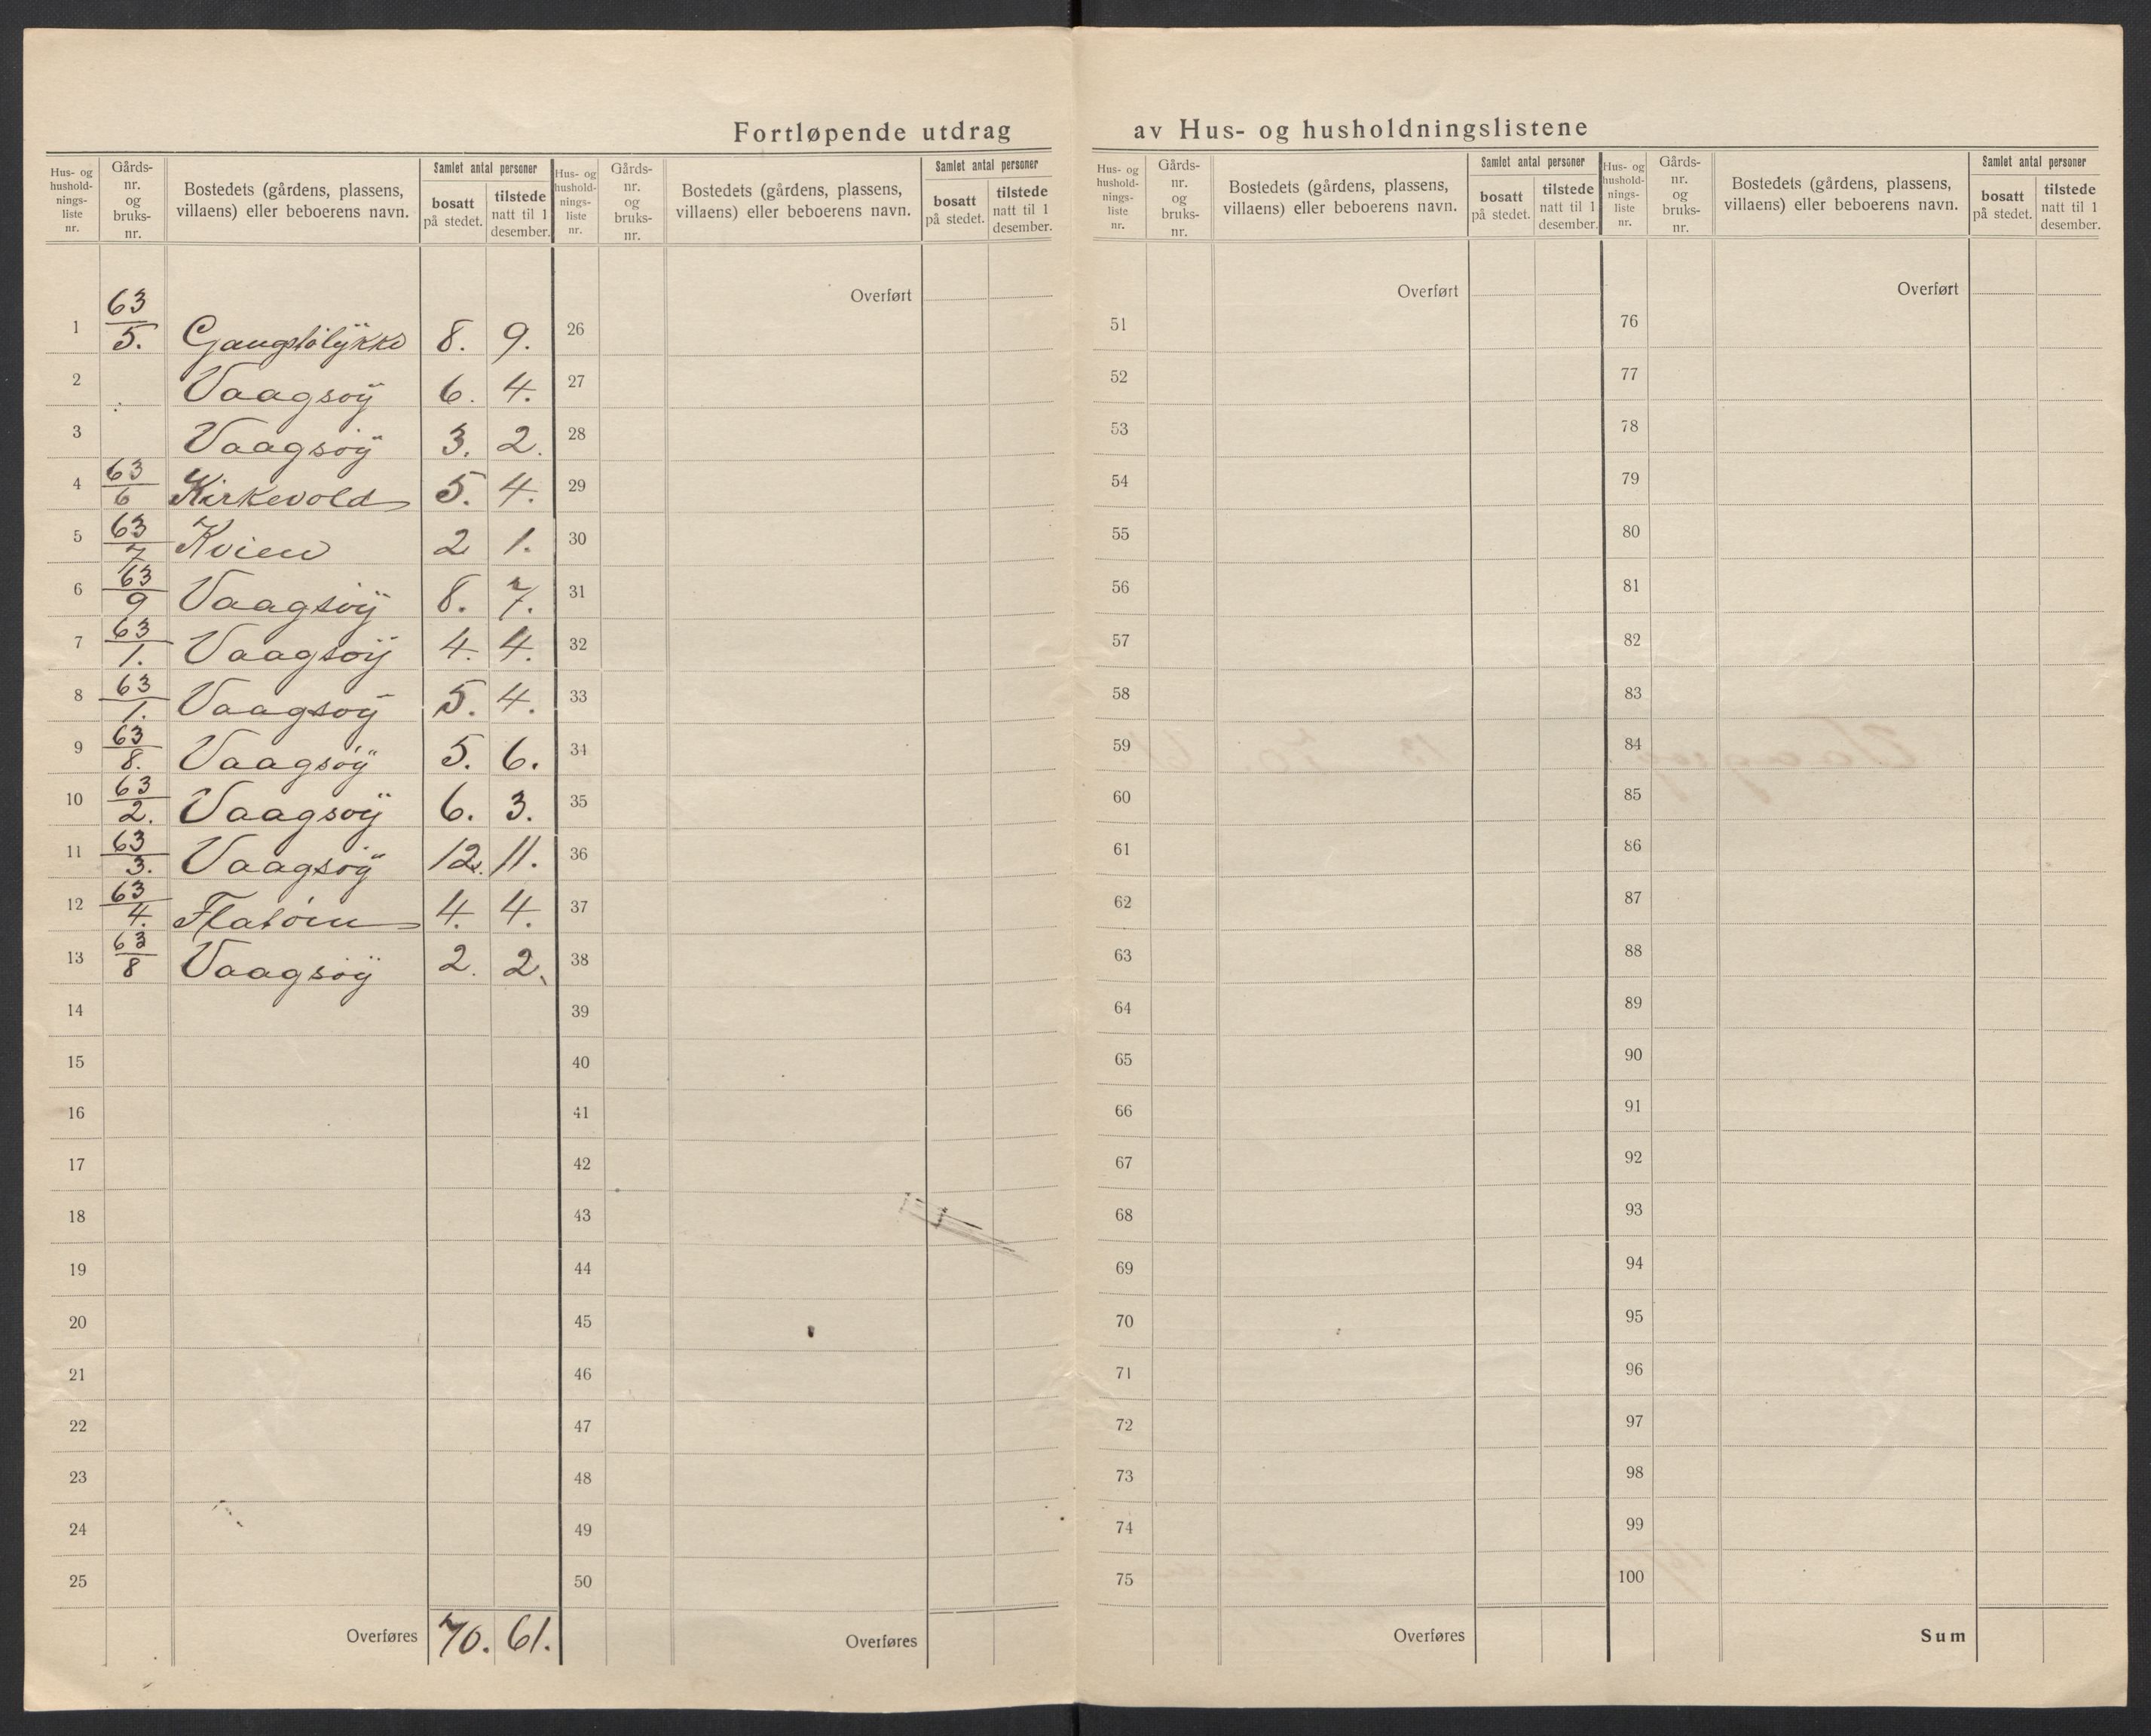 Fortløpende utdrag av Hus- og husholdningslistene
Hus- og hushold-nings-liste nr. | Gårds-nr. og bruks-nr. | Bostedets (gårdens, plassens, villaens) eller beboerens navn. | Samlet antal personer | bosatt på stedet. | tilstede natt til 1 desember.
1 63/5. 8. 9.
2 Vaagsöÿ 6. 4.
3 Vaagsöÿ 3. 2.
4 63/6 Kirkevold 5. 4.
5 63/7 Kvien 2 1.
6 63/9 Vaagsöÿ 8. 7.
7 63/1. Vaagsöÿ 4. 4.
8 63/1. Vaagsöÿ 5. 4.
9 63/8. Vaagsöÿ 5. 6.
10 63/2. Vaagsöÿ 6. 3.
11 63/3. Vaagsöÿ 12. 11.
12 63/4. Flatöen 4. 4.
13 63/8 Vaagsöÿ 2. 2.
14
15
16
17
18
19
20
21
22
23
24
25
Overføres 70. 61.
Hus- og hushold-nings-liste nr. | Gårds-nr. og bruks-nr. | Bostedets (gårdens, plassens, villaens) eller beboerens navn. | Samlet antal personer | bosatt på stedet. | tilstede natt til 1 desember.
Overført
26
27
28
29
30
31
32
33
34
35
36
37
38
39
40
41
42
43
44
45
46
47
48
49
50
Overføres
Hus- og hushold-nings-liste nr. | Gårds-nr. og bruks-nr. | Bostedets (gårdens, plassens, villaens) eller beboerens navn. | Samlet antal personer | bosatt på stedet. | tilstede natt til 1 desember.
Overført
51
52
53
54
55
56
57
58
59
60
61
62
63
64
65
66
67
68
69
70
71
72
73
74
75
Overføres
Hus- og hushold-nings-liste nr. | Gårds-nr. og bruks-nr. | Bostedets (gårdens, plassens, villaens) eller beboerens navn. | Samlet antal personer | bosatt på stedet. | tilstede natt til 1 desember.
Overført
76
77
78
79
80
81
82
83
84
85
86
87
88
89
90
91
92
93
94
95
96
97
98
99
100
Sum